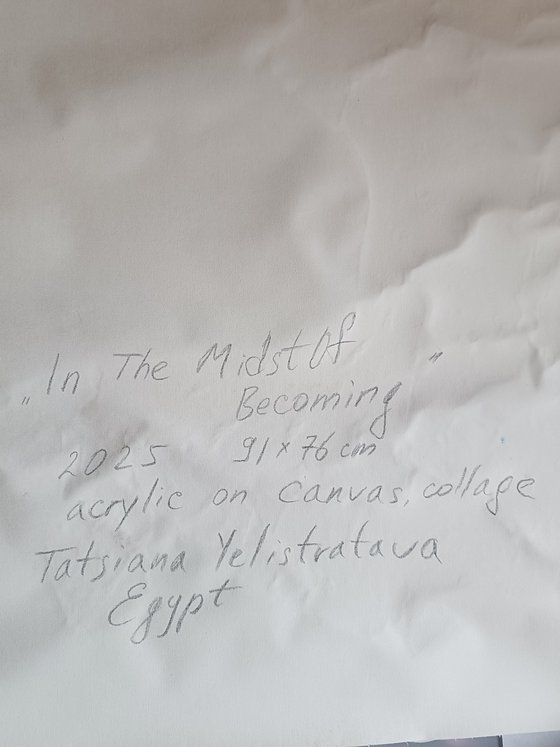 „In The Midst Of
Becoming"
2025 91 x 76 cm
acrylic on Canvas, collage
Tatsiana Yelistratava
Egypt